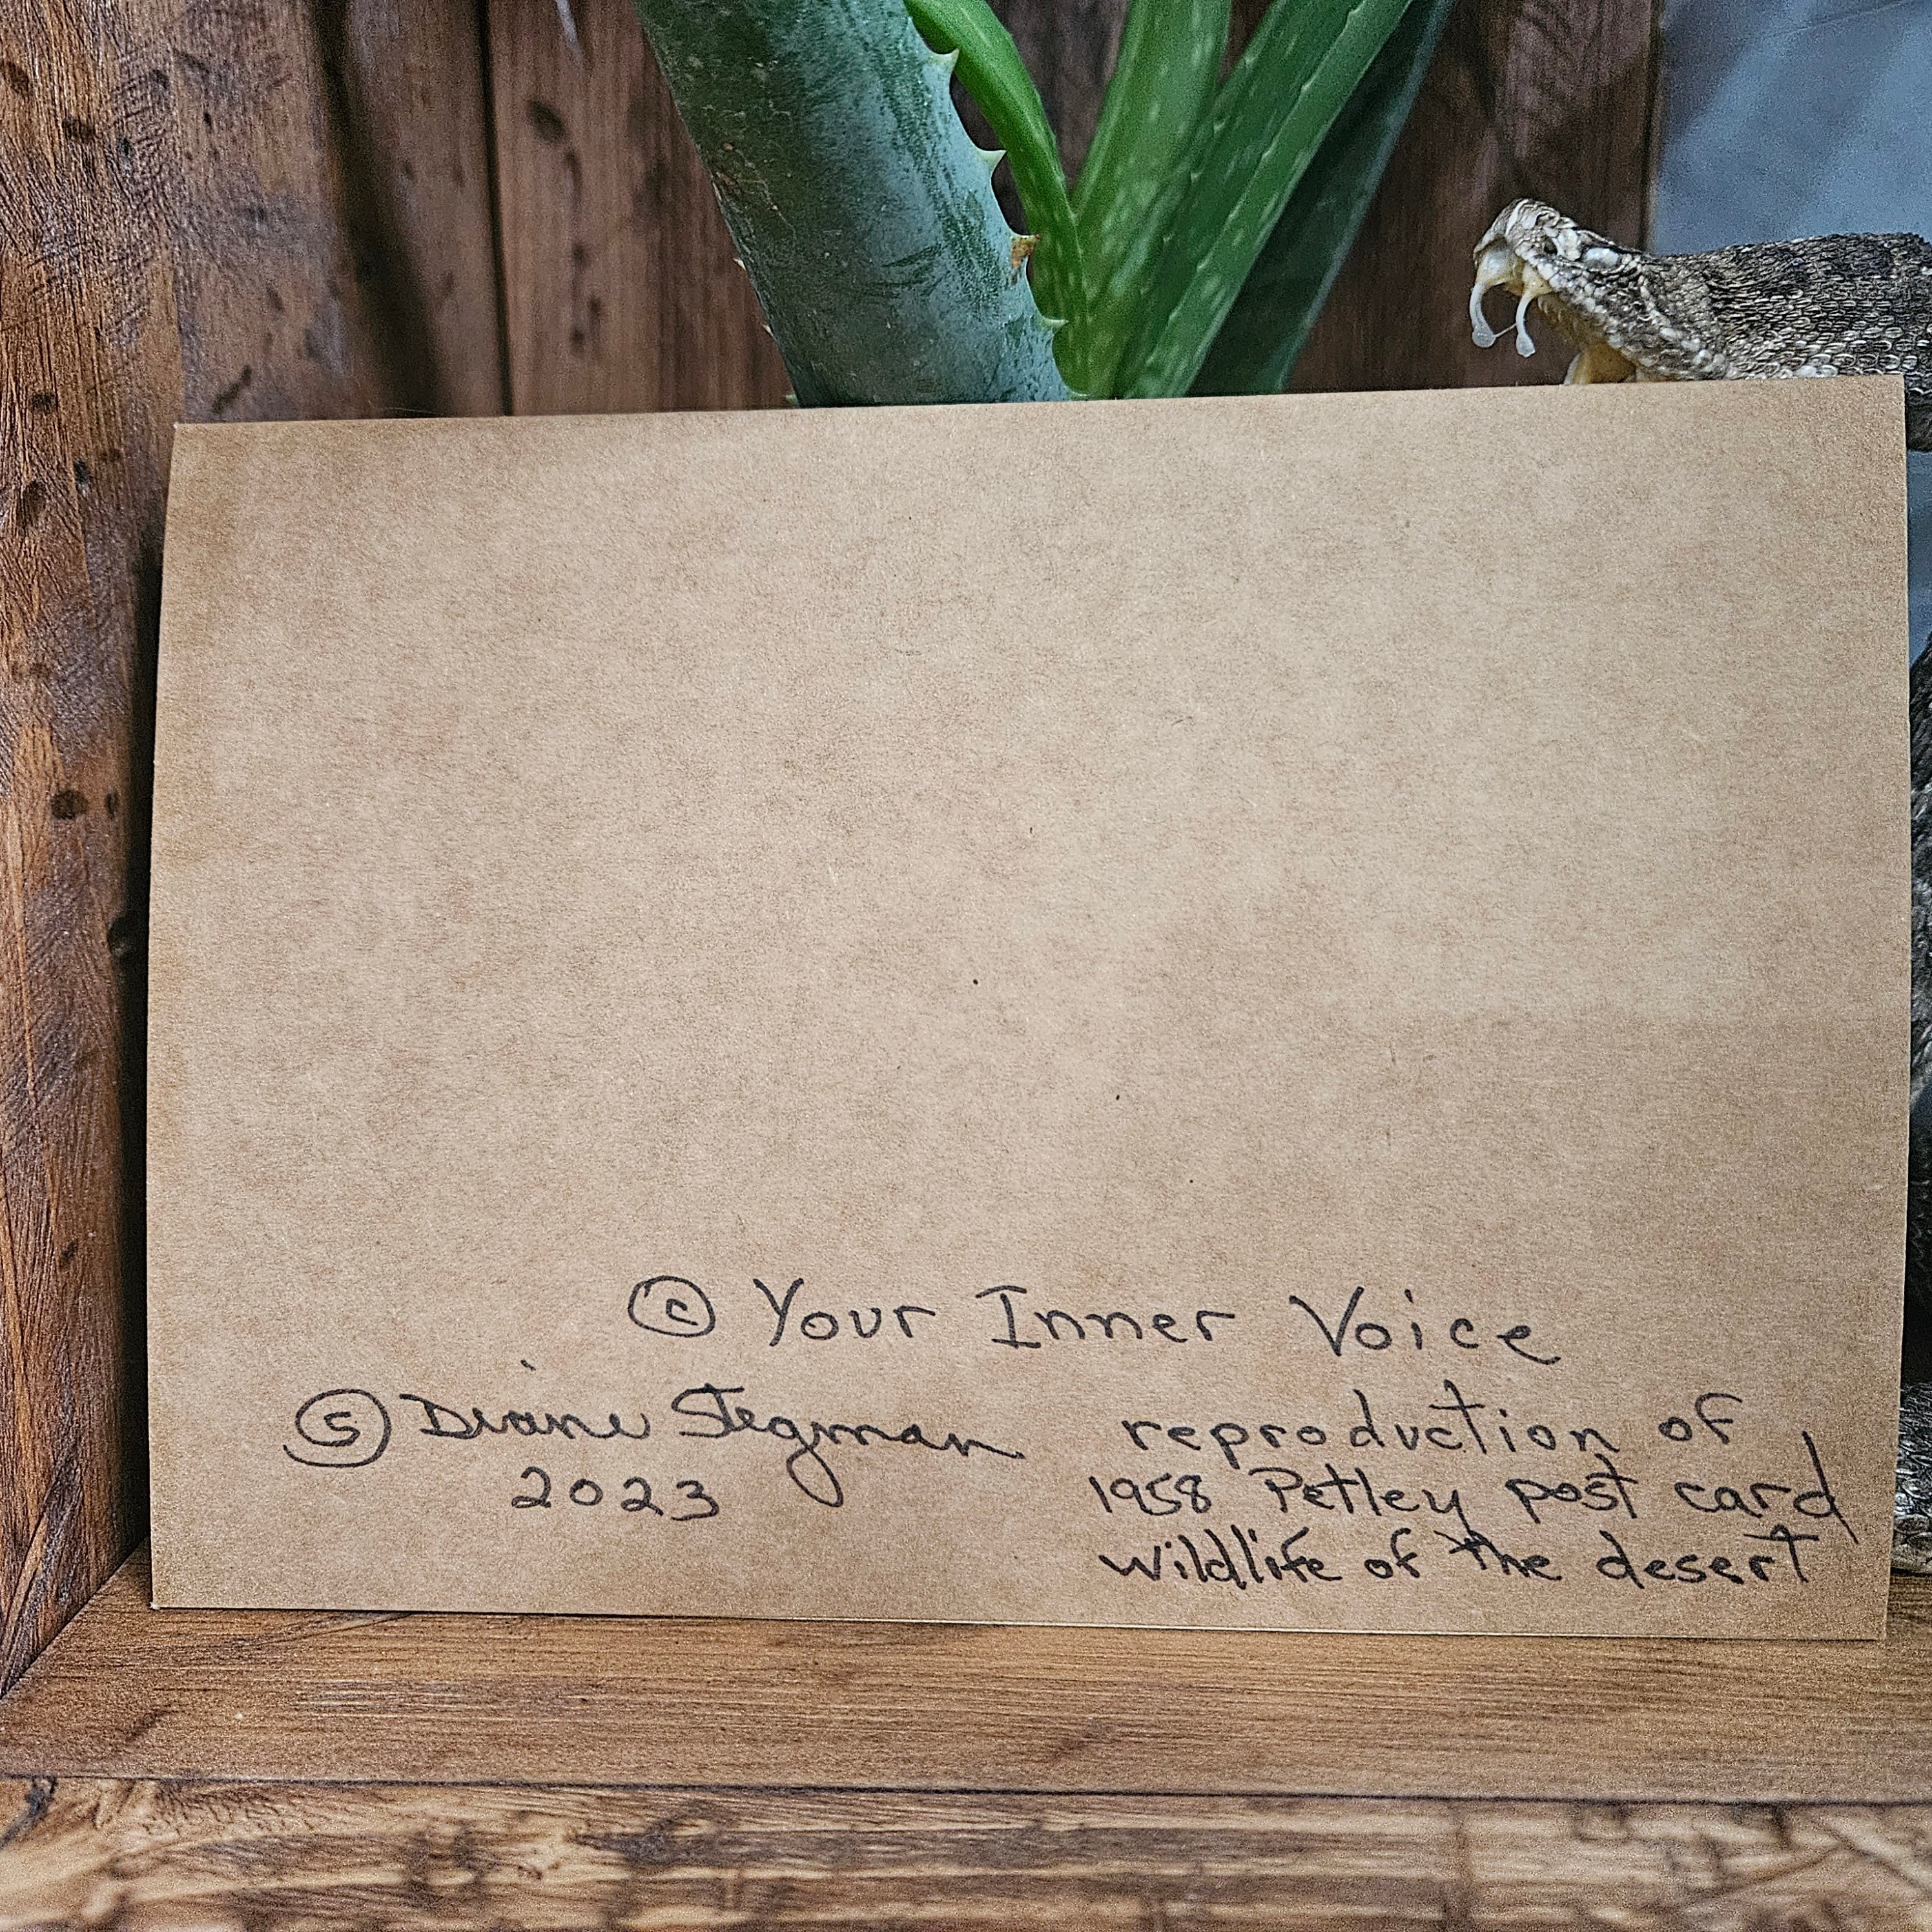 © Your Inner Voice
Ⓢ Diane Stegman
2023
reproduction of
1958 Petley post card
wildlife of the desert